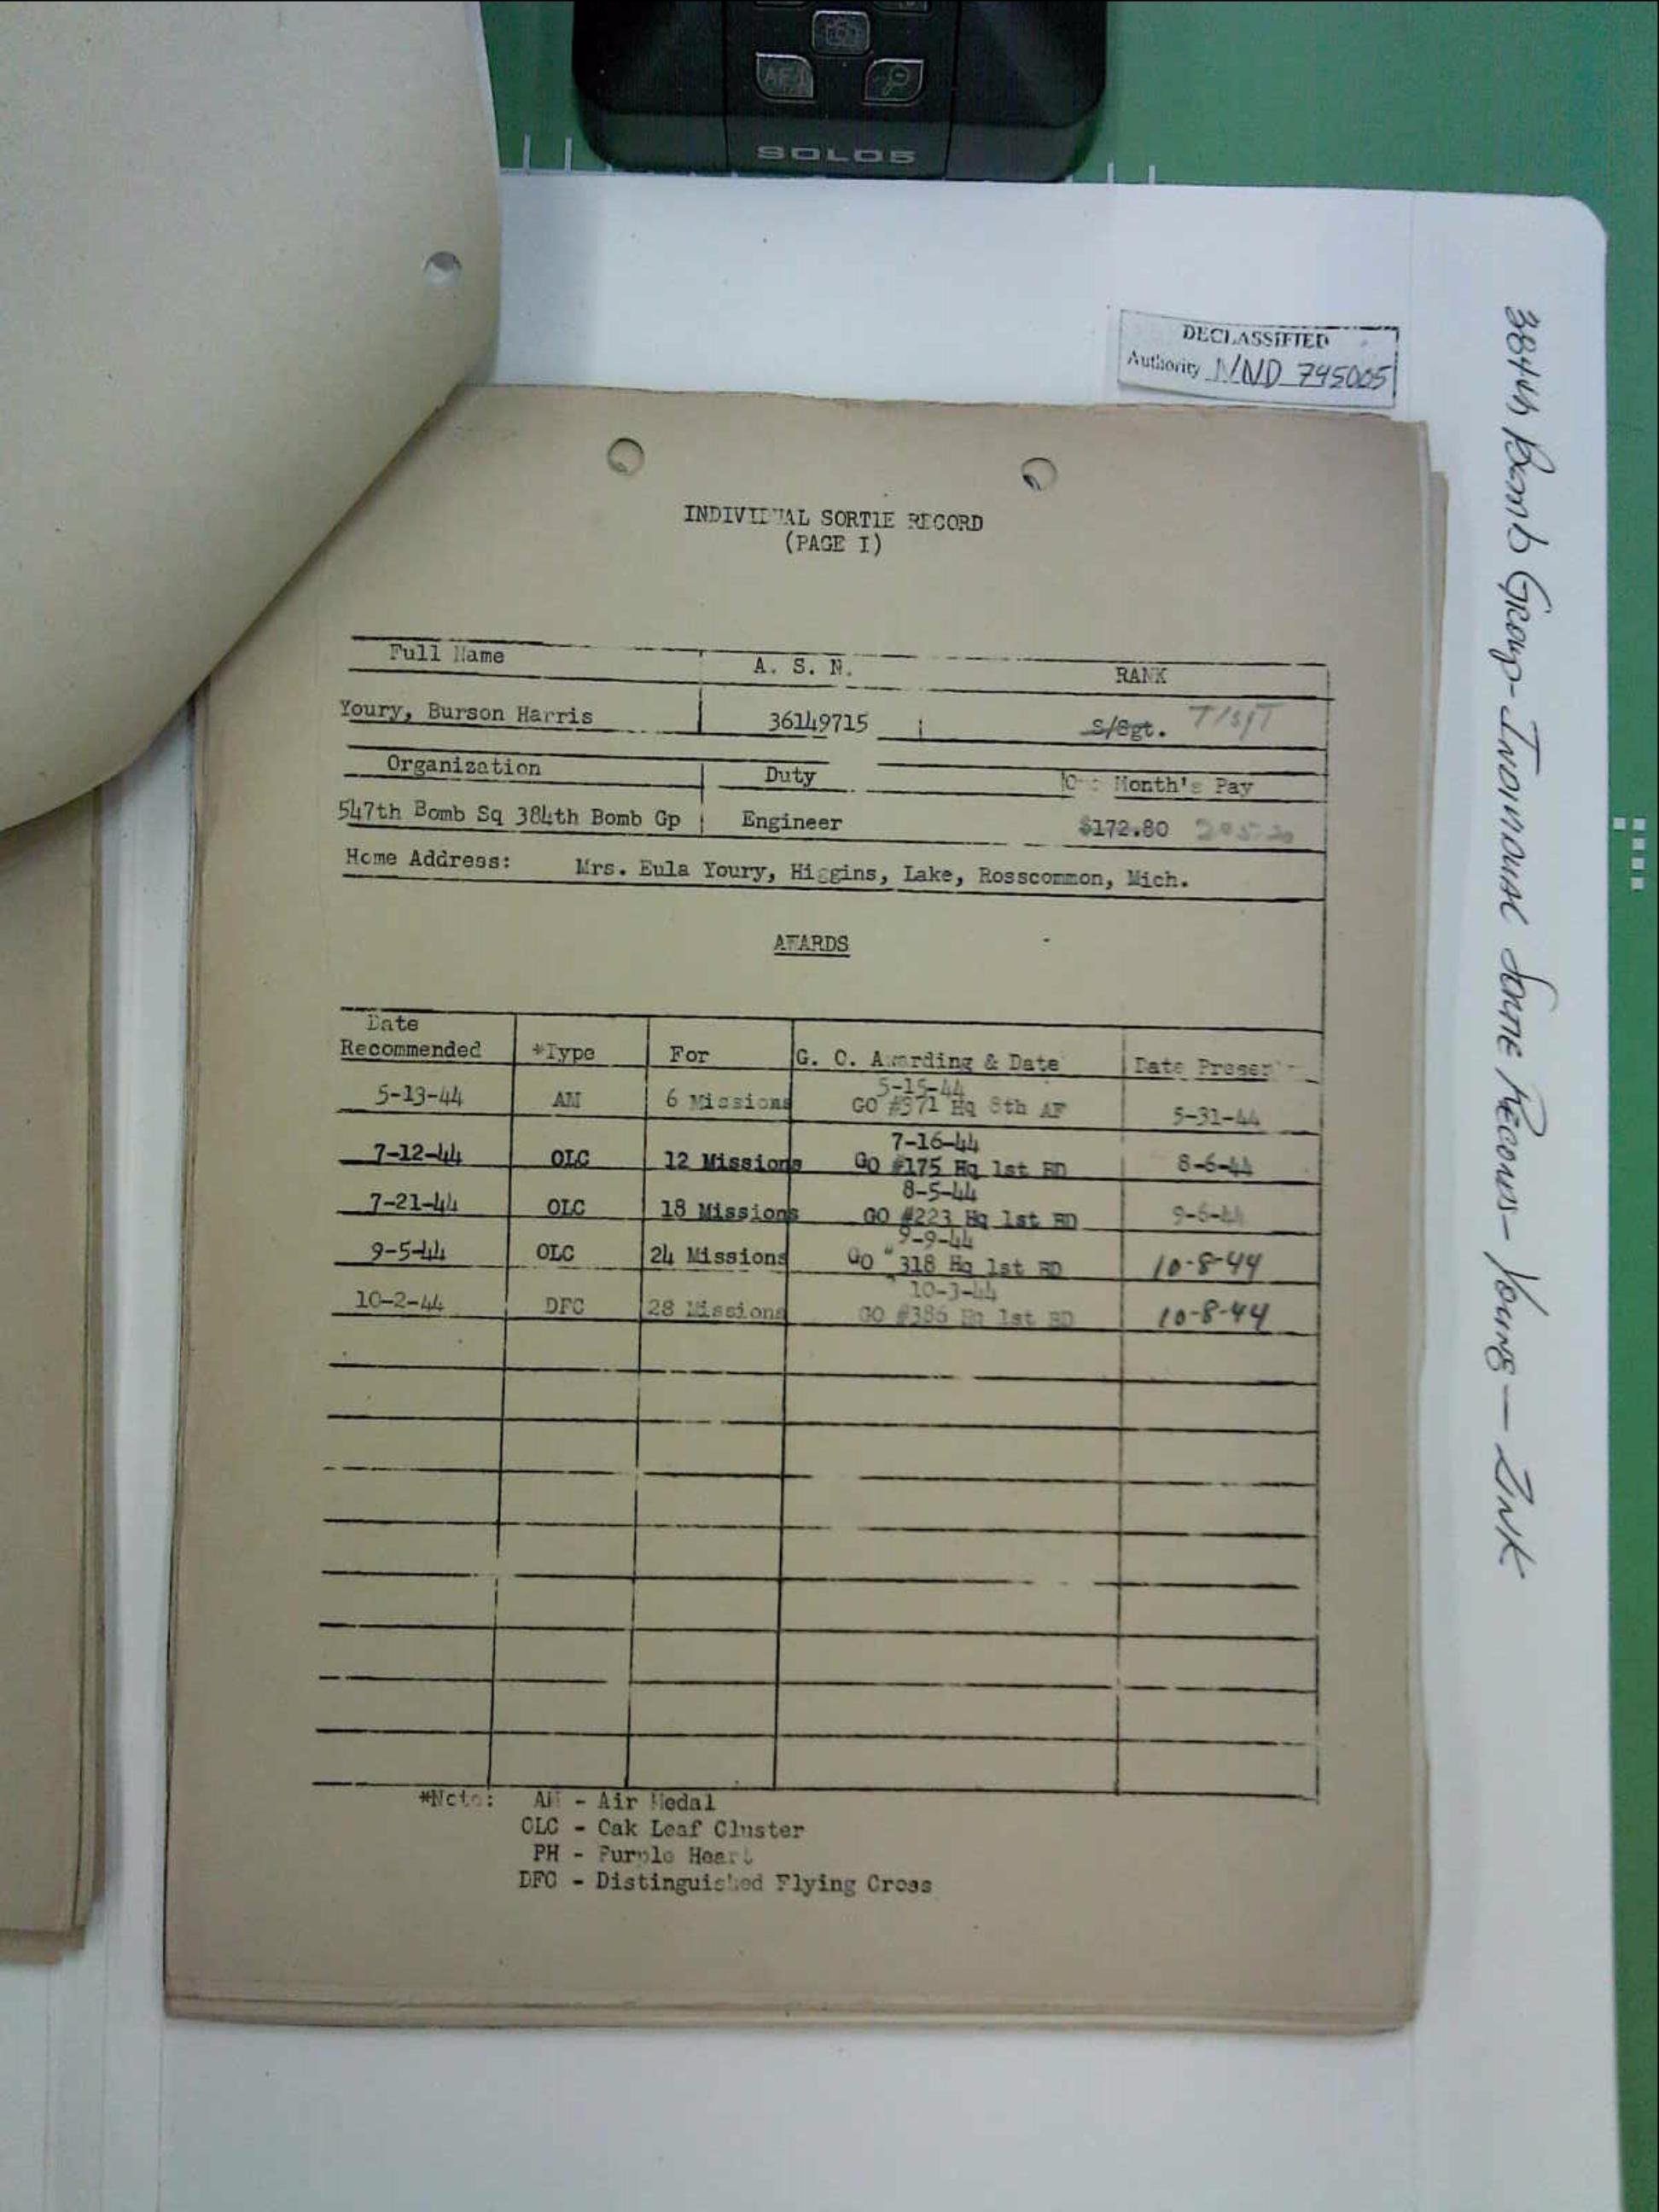 SOLO5
DECLASSIFIED
Authority NND 745005
384th Bomb Group - Individual Sortie Records - Young — Zink
INDIVIDUAL SORTIE RECORD
(PAGE I)
Full Name A. S. N. RANK
Youry, Burson Harris 36149715 S/Sgt. T/Sgt
Organization Duty One Month's Pay
547th Bomb Sq 384th Bomb Gp Engineer $172.80
Home Address: Mrs. Eula Youry, Higgins, Lake, Rosscommon, Mich.
AWARDS
Date
Recommended *Type For G. C. Awarding & Date Date Presen
5-15-44
5-13-44 AM 6 Missions GO #371 Hq 8th AF 5-31-44
7-16-44
7-12-44 OLC 12 Missions GO #175 Hq 1st BD 8-6-44
8-5-44
7-21-44 OLC 18 Missions GO #223 Hq 1st BD 9-6-44
9-9-44
9-5-44 OLC 24 Missions GO " 318 Hq 1st BD 10-8-44
10-3-44
10-2-44 DFC 28 Missions GO #386 Hq 1st BD 10-8-44
*Note: AM - Air Medal
OLC - Oak Leaf Cluster
PH - Purple Heart
DFC - Distinguished Flying Cross